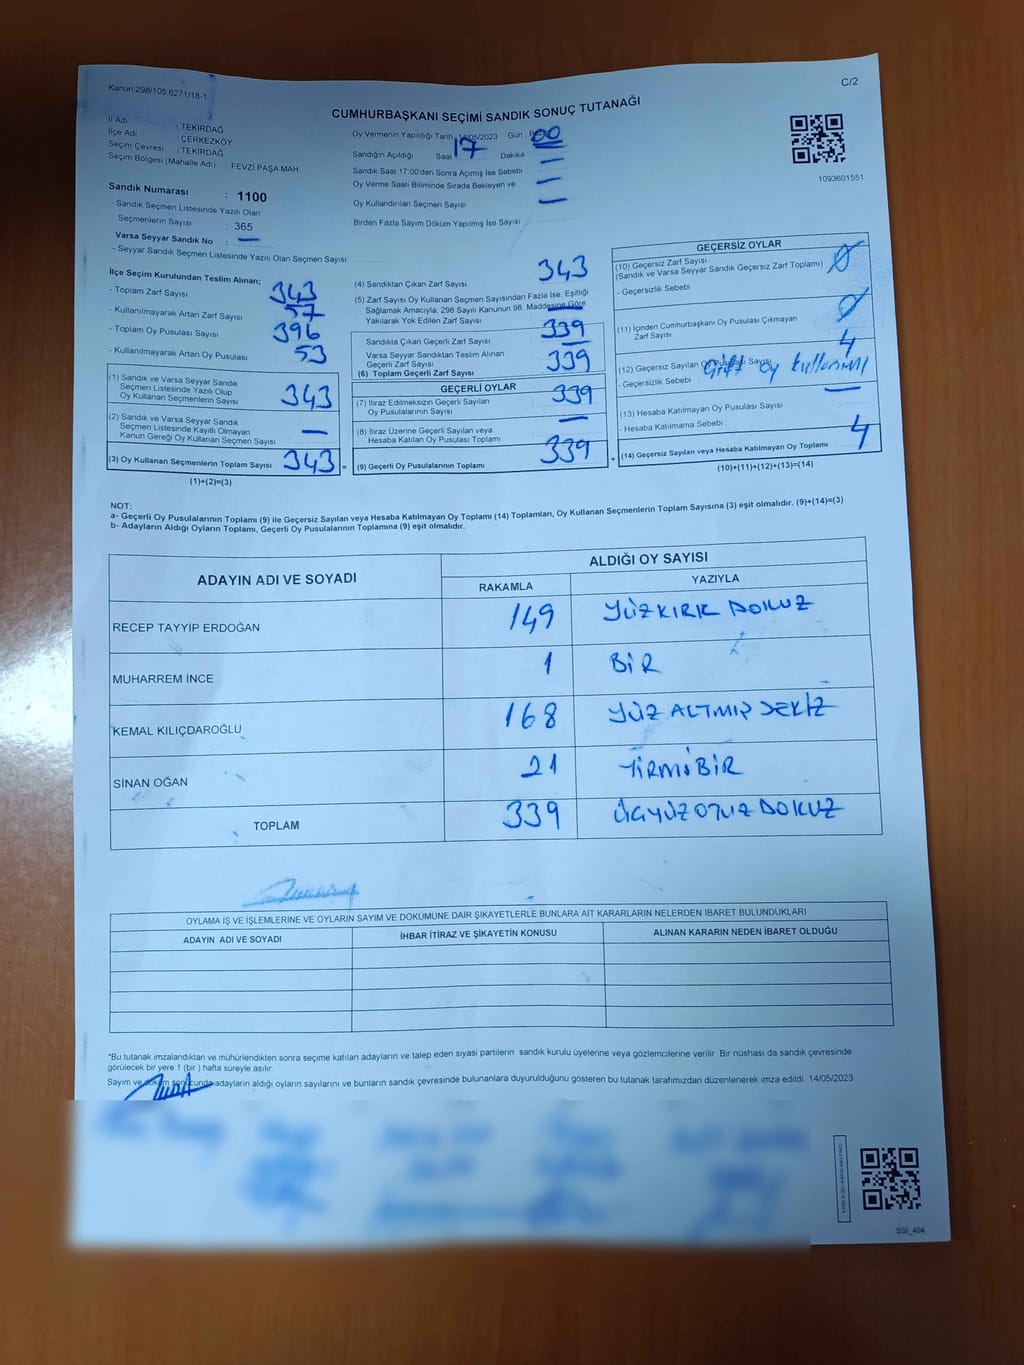 Kanun,298/105,6271/18-1
C/2
CUMHURBAŞKANI SEÇİMİ SANDIK SONUÇ TUTANAĞI
İl Adı : TEKİRDAĞ
İlçe Adı : ÇERKEZKÖY
Seçim Çevresi : TEKİRDAĞ
Seçim Bölgesi (Mahalle Adı) FEVZİ PAŞA MAH
Sandık Numarası : 1100
- Sandık Seçmen Listesinde Yazılı Olan
Seçmenlerin Sayısı : 365
Varsa Seyyar Sandık No : —
- Seyyar Sandık Seçmen Listesinde Yazılı Olan Seçmen Sayısı:
Oy Vermenin Yapıldığı Tarih : 14/05/2023 Gün :
Sandığın Açıldığı Saat 17 Dakika : 00
Sandık Saat 17.00'den Sonra Açımış İse Sebebi —
Oy Verme Saati Bitiminde Sırada Bekleyen ve
Oy Kullandırılan Seçmen Sayısı —
Birden Fazla Sayım Döküm Yapılmış İse Sayısı —
1093601551
İlçe Seçim Kurulundan Teslim Alınan;
- Toplam Zarf Sayısı 343
- Kullanılmayarak Artan Zarf Sayısı 57
- Toplam Oy Pusulası Sayısı 396
- Kullanılmayarak Artan Oy Pusulası 53
(1) Sandık ve Varsa Seyyar Sandık
Seçmen Listesinde Yazılı Olup
Oy Kullanan Seçmenlerin Sayısı 343
(2) Sandık ve Varsa Seyyar Sandık
Seçmen Listesinde Kayıtlı Olmayan
Kanun Gereği Oy Kullanan Seçmen Sayısı —
(3) Oy Kullanan Seçmenlerin Toplam Sayısı 343 =
(1)+(2)=(3)
(4) Sandıktan Çıkan Zarf Sayısı 343
(5) Zarf Sayısı Oy Kullanan Seçmen Sayısından Fazla İse, Eşitliği
Sağlamak Amacıyla; 298 Sayılı Kanunun 98. Maddesine Göre
Yakılarak Yok Edilen Zarf Sayısı —
Sandıkta Çıkan Geçerli Zarf Sayısı 339
Varsa Seyyar Sandıktan Teslim Alınan
Geçerli Zarf Sayısı
(6) Toplam Geçerli Zarf Sayısı 339
GEÇERLİ OYLAR
(7) İtiraz Edilmeksizin Geçerli Sayılan
Oy Pusulalarının Sayısı 339
(8) İtiraz Üzerine Geçerli Sayılan veya
Hesaba Katılan Oy Pusulası Toplamı —
(9) Geçerli Oy Pusulalarının Toplamı 339 +
GEÇERSİZ OYLAR
(10) Geçersiz Zarf Sayısı
(Sandık ve Varsa Seyyar Sandık Geçersiz Zarf Toplamı) 0
- Geçersizlik Sebebi
(11) İçinden Cumhurbaşkanı Oy Pusulası Çıkmayan
Zarf Sayısı 0
(12) Geçersiz Sayılan Oy Pusulası Sayısı 4
- Geçersizlik Sebebi Çift oy kullanımı
(13) Hesaba Katılmayan Oy Pusulası Sayısı —
- Hesaba Katılmama Sebebi
(14) Geçersiz Sayılan veya Hesaba Katılmayan Oy Toplamı 4
(10)+(11)+(12)+(13)=(14)
NOT:
a- Geçerli Oy Pusulalarının Toplamı (9) ile Geçersiz Sayılan veya Hesaba Katılmayan Oy Toplamı (14) Toplamları, Oy Kullanan Seçmenlerin Toplam Sayısına (3) eşit olmalıdır. (9)+(14)=(3)
b- Adayların Aldığı Oyların Toplamı, Geçerli Oy Pusulalarının Toplamına (9) eşit olmalıdır.
ADAYIN ADI VE SOYADI ALDIĞI OY SAYISI
RAKAMLA YAZIYLA
RECEP TAYYİP ERDOĞAN 149 YÜZKIRK DOKUZ
MUHARREM İNCE 1 BİR
KEMAL KILIÇDAROĞLU 168 YÜZ ALTMIŞ SEKİZ
SİNAN OĞAN 21 YİRMİBİR
TOPLAM 339 ÜÇYÜZ OTUZ DOKUZ
OYLAMA İŞ VE İŞLEMLERİNE VE OYLARIN SAYIM VE DÖKÜMÜNE DAİR ŞİKAYETLERLE BUNLARA AİT KARARLARIN NELERDEN İBARET BULUNDUKLARI
ADAYIN ADI VE SOYADI İHBAR İTİRAZ VE ŞİKAYETİN KONUSU ALINAN KARARIN NEDEN İBARET OLDUĞU
*Bu tutanak imzalandıktan ve mühürlendikten sonra seçime katılan adayların ve talep eden siyasi partilerin sandık kurulu üyelerine veya gözlemcilerine verilir. Bir nüshası da sandık çevresinde
görülecek bir yere 1 (bir) hafta süreyle asılır.
Sayım ve döküm sonucunda adayların aldığı oyların sayılarını ve bunların sandık çevresinde bulunanlara duyurulduğunu gösteren bu tutanak tarafımızdan düzenlenerek imza edildi. 14/05/2023
SSI_404